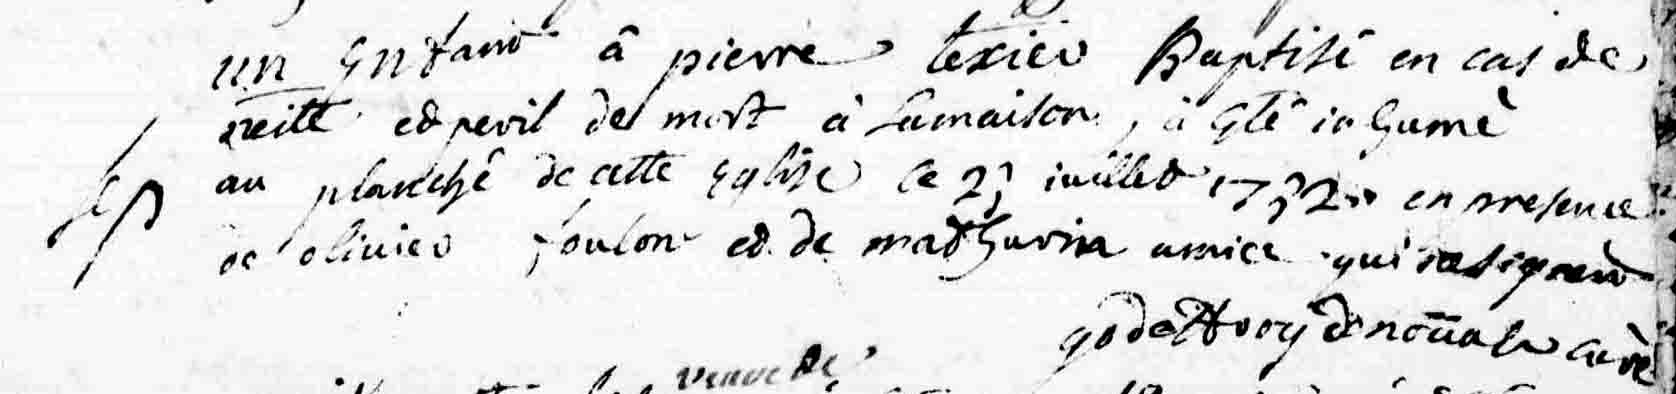 un Enfant â pierre texier Baptisé en cas de
et peril de mort à Lamaison, à Eté inhumé
au planché de cette Eglise ce juillet en presence
de olivier foulon et de mathurin amice qui ne signent
de curé
veuve de